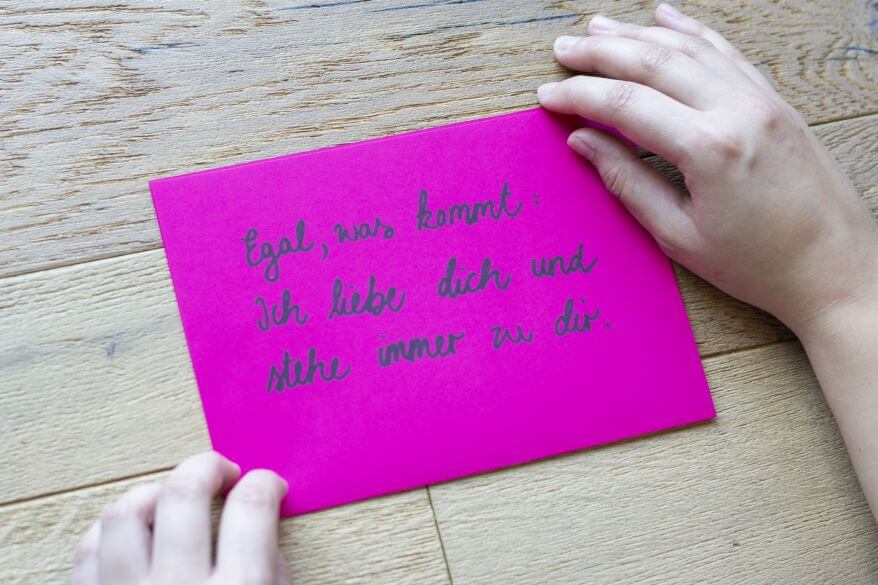 Egal, was kommt:
Ich liebe dich und
stehe immer zu dir.